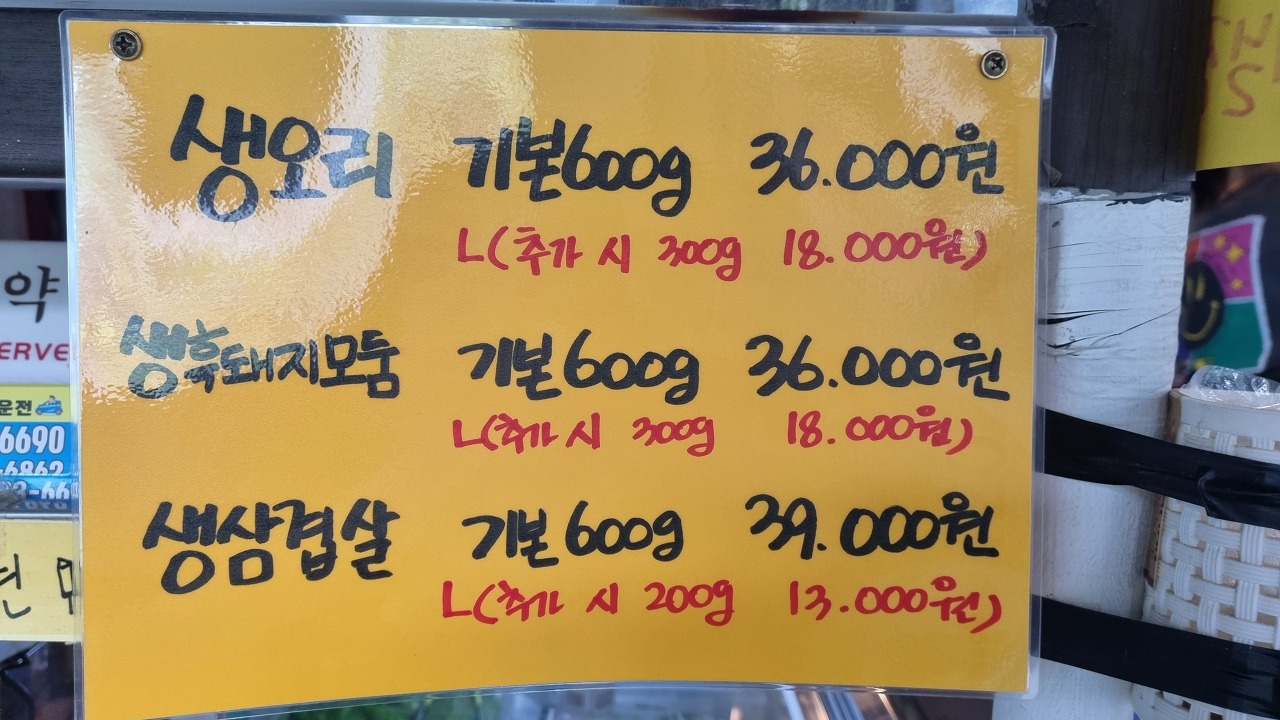 생오리 기본600g 36.000원
ㄴ(추가 시 300g 18.000원)
생흑돼지모둠 기본600g 36.000원
ㄴ(추가 시 300g 18.000원)
생삼겹살 기본600g 39.000원
ㄴ(추가 시 200g 13.000원)
약
ERVE
운전
6690
-6862